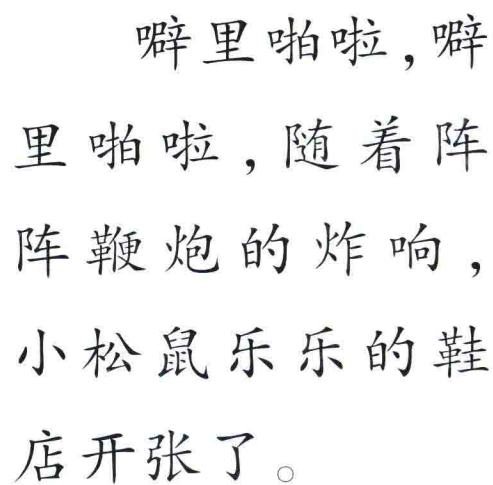 噼里啪啦,噼
里啪啦,随着阵
阵鞭炮的炸响,
小松鼠乐乐的鞋
店开张了。